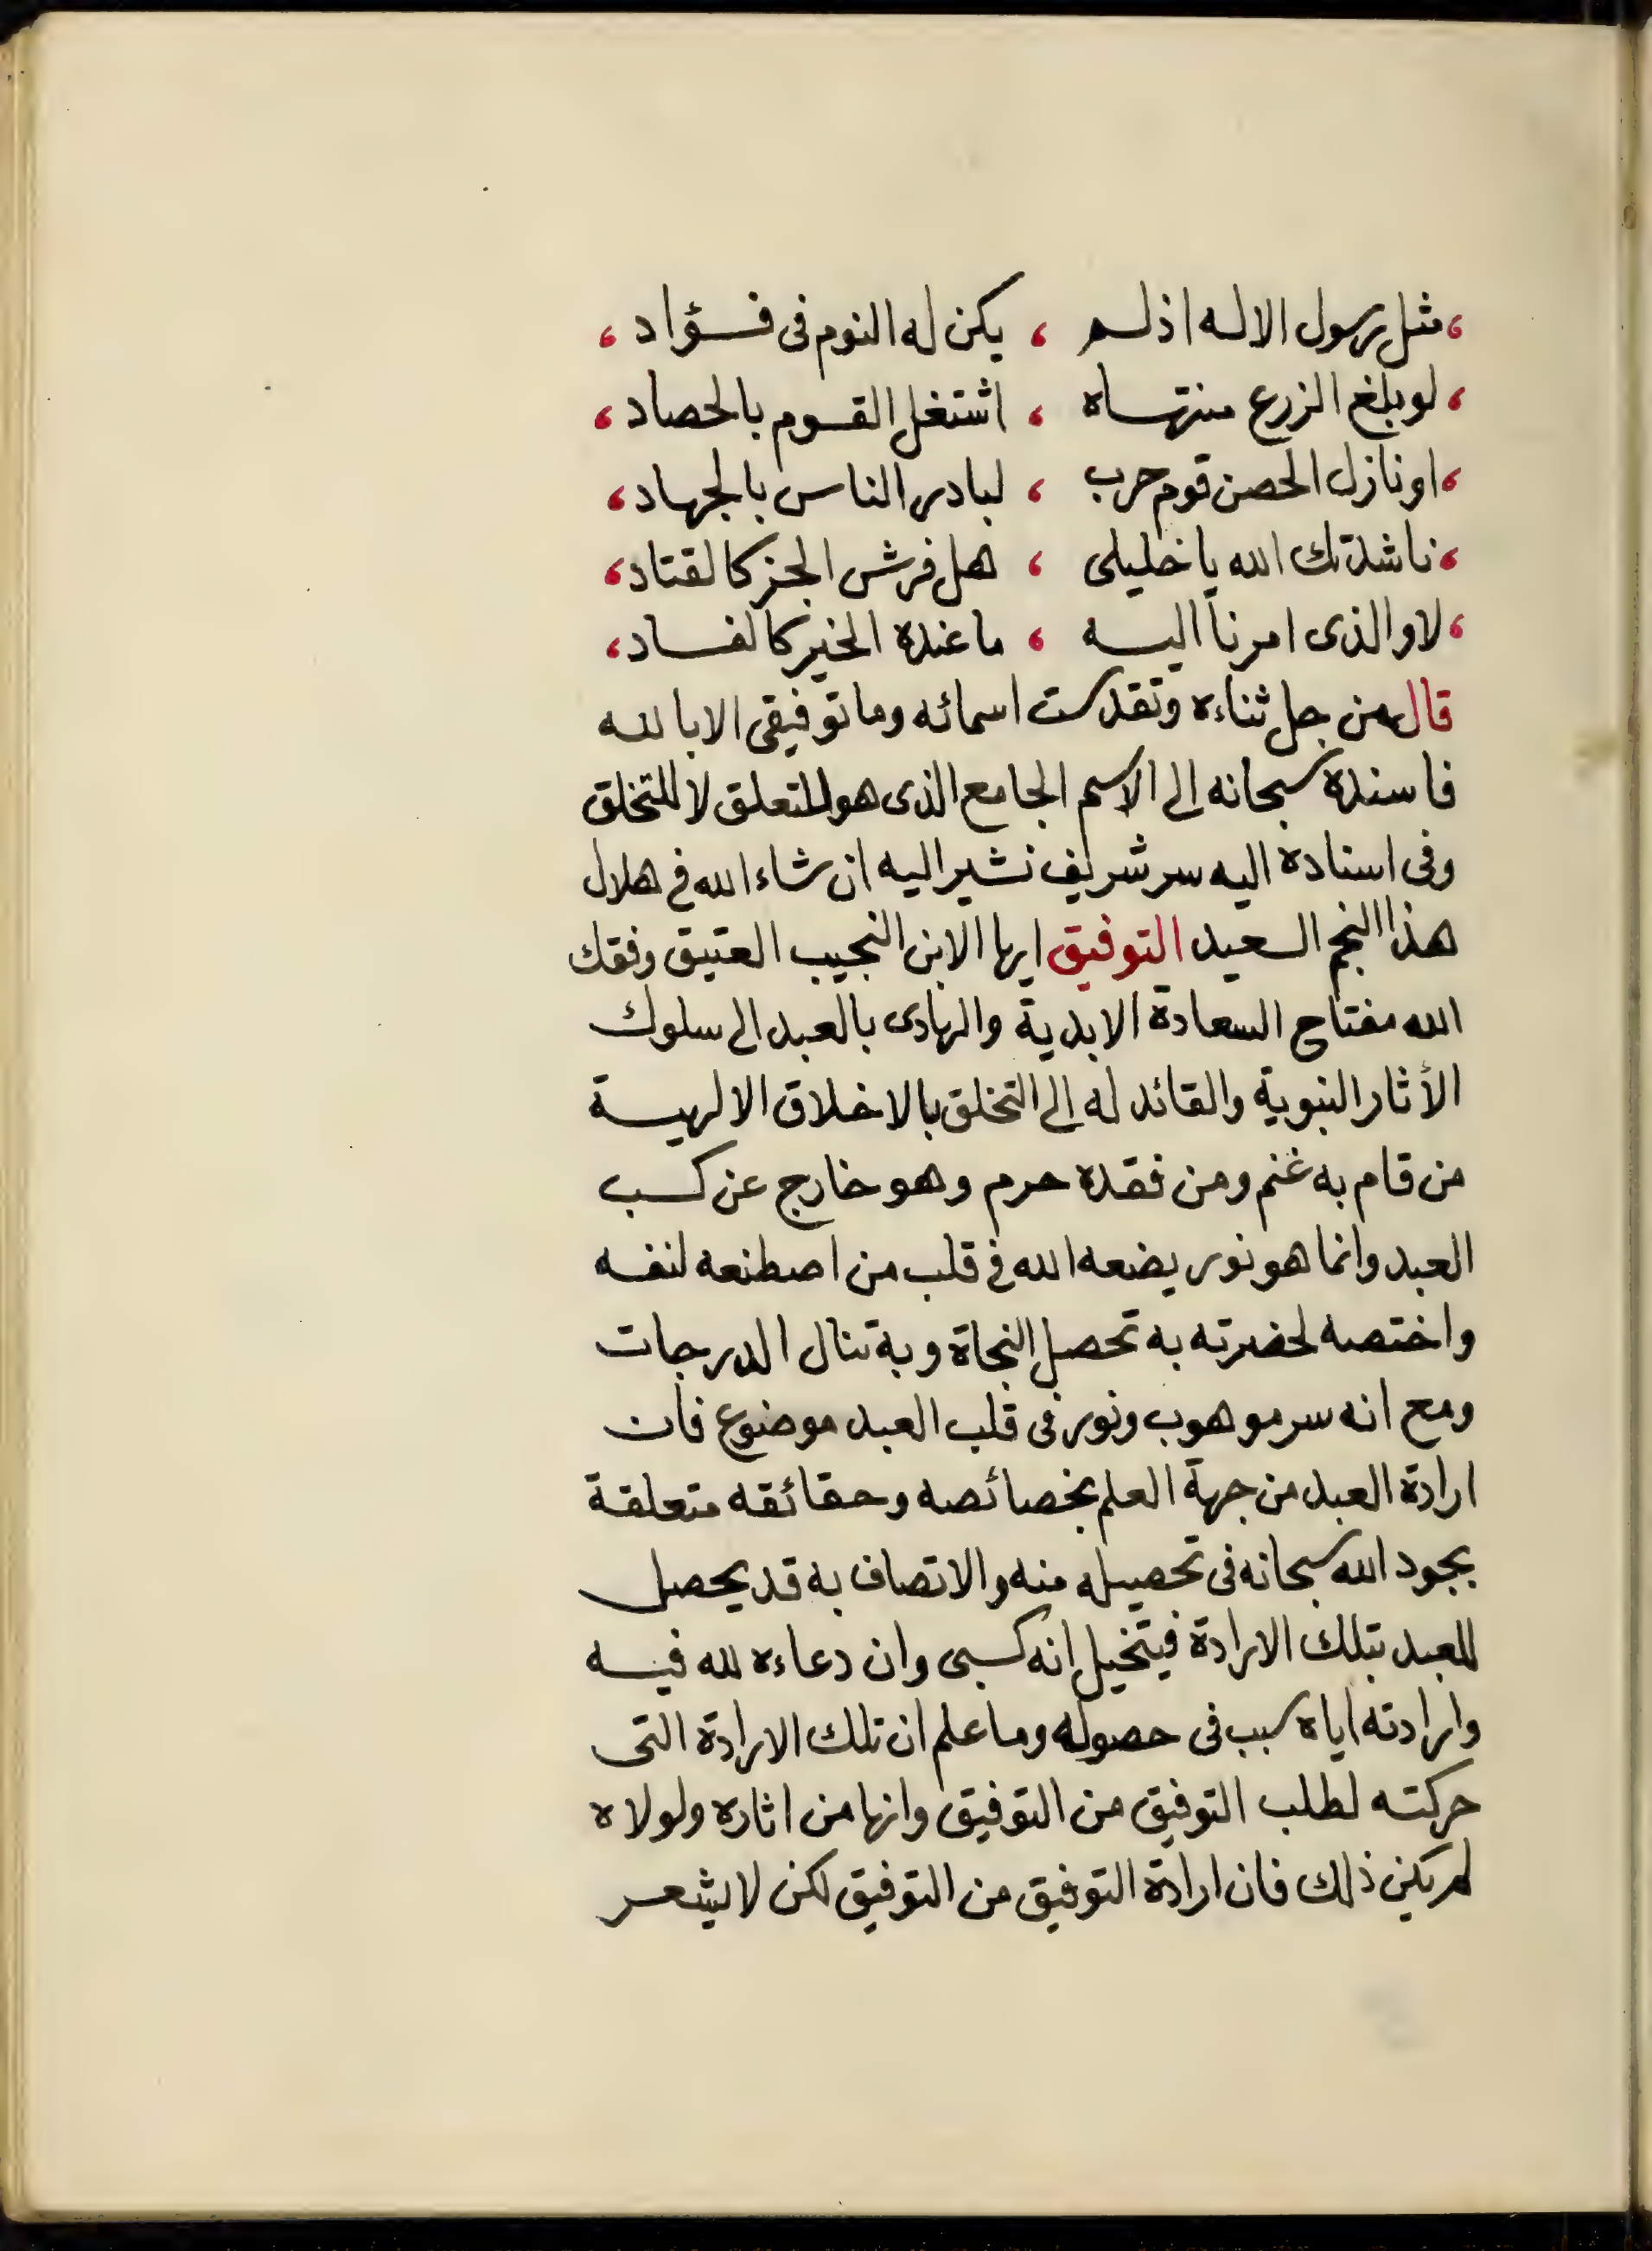 ، مثل رسول الاله اذ لم ، يكن له النوم فى فؤاد ،
، لو بلغ الزرع منتهاه ، اشتغل القوم بالحصاد ،
، او نازل الحصن قوم حرب ، لبادر الناس بالجهاد ،
، ناشدتك الله يا خليلى ، هل فرش الخز كالقتاد ،
، لا والذى امرنا اليه ، ما عنده الخير كالفساد ،
قال من جل ثناءه وتقدست اسمائه وما توفيقى الا بالله
فاسنده سبحانه الى الاسم الجامع الذى هو للتعلق لا للتخلق
وفى اسناده اليه سر شريف نشير اليه ان شاء الله فى هلال
هذا النجم السعيد التوفيق ايها الابن النجيب العتيق وفقك
الله مفتاح السعادة الابدية والهادى بالعبد الى سلوك
الأثار النبوية والقائد له الى التخلق بالاخلاق الالهية
من قام به غنم ومن فقده حرم وهو خارج عن كسب
العبد وانما هو نور يضعه الله فى قلب من اصطنعه لنفسه
واختصه لحضرته به تحصل النجاة وبه تنال الدرجات
ومع انه سر موهوب ونور فى قلب العبد موضوع فان
ارادة العبد من جهة العلم بخصائصه وحقائقه متعلقة
بجود الله سبحانه فى تحصيله منه والاتصاف به قد يحصل
للعبد بتلك الارادة فيتخيل انه كسبى وان دعاءه لله فيه
وارادته اياه سبب فى حصوله وما علم ان تلك الارادة التى
حركته لطلب التوفيق من التوفيق وانها من اثاره ولولاه
لم يكن ذلك فان ارادة التوفيق من التوفيق لكن لا يشعر